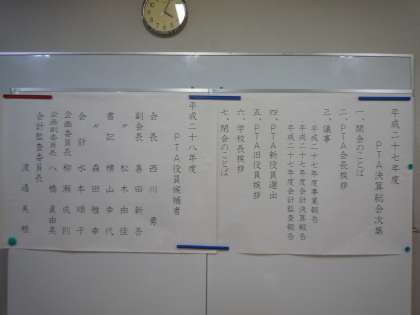 平成二十七年度
PTA決算総会次第
一、開会のことば
二、PTA会長挨拶
三、議事
平成二十七年度事業報告
平成二十七年度会計決算報告
平成二十七年度会計監査報告
四、PTA新役員選出
五、PTA旧役員挨拶
六、学校長挨拶
七、閉会のことば
平成二十八年度
PTA役員候補者
会長 西川 勇
副会長 島田 新吾
〃 松木 由佳
書記 横山 幸代
〃 森田 雅幸
会計 水本 順子
企画委員長 柳瀬 成則
企画副委員長 八幡 真由美
会計監査委員長 渡邊 美穂